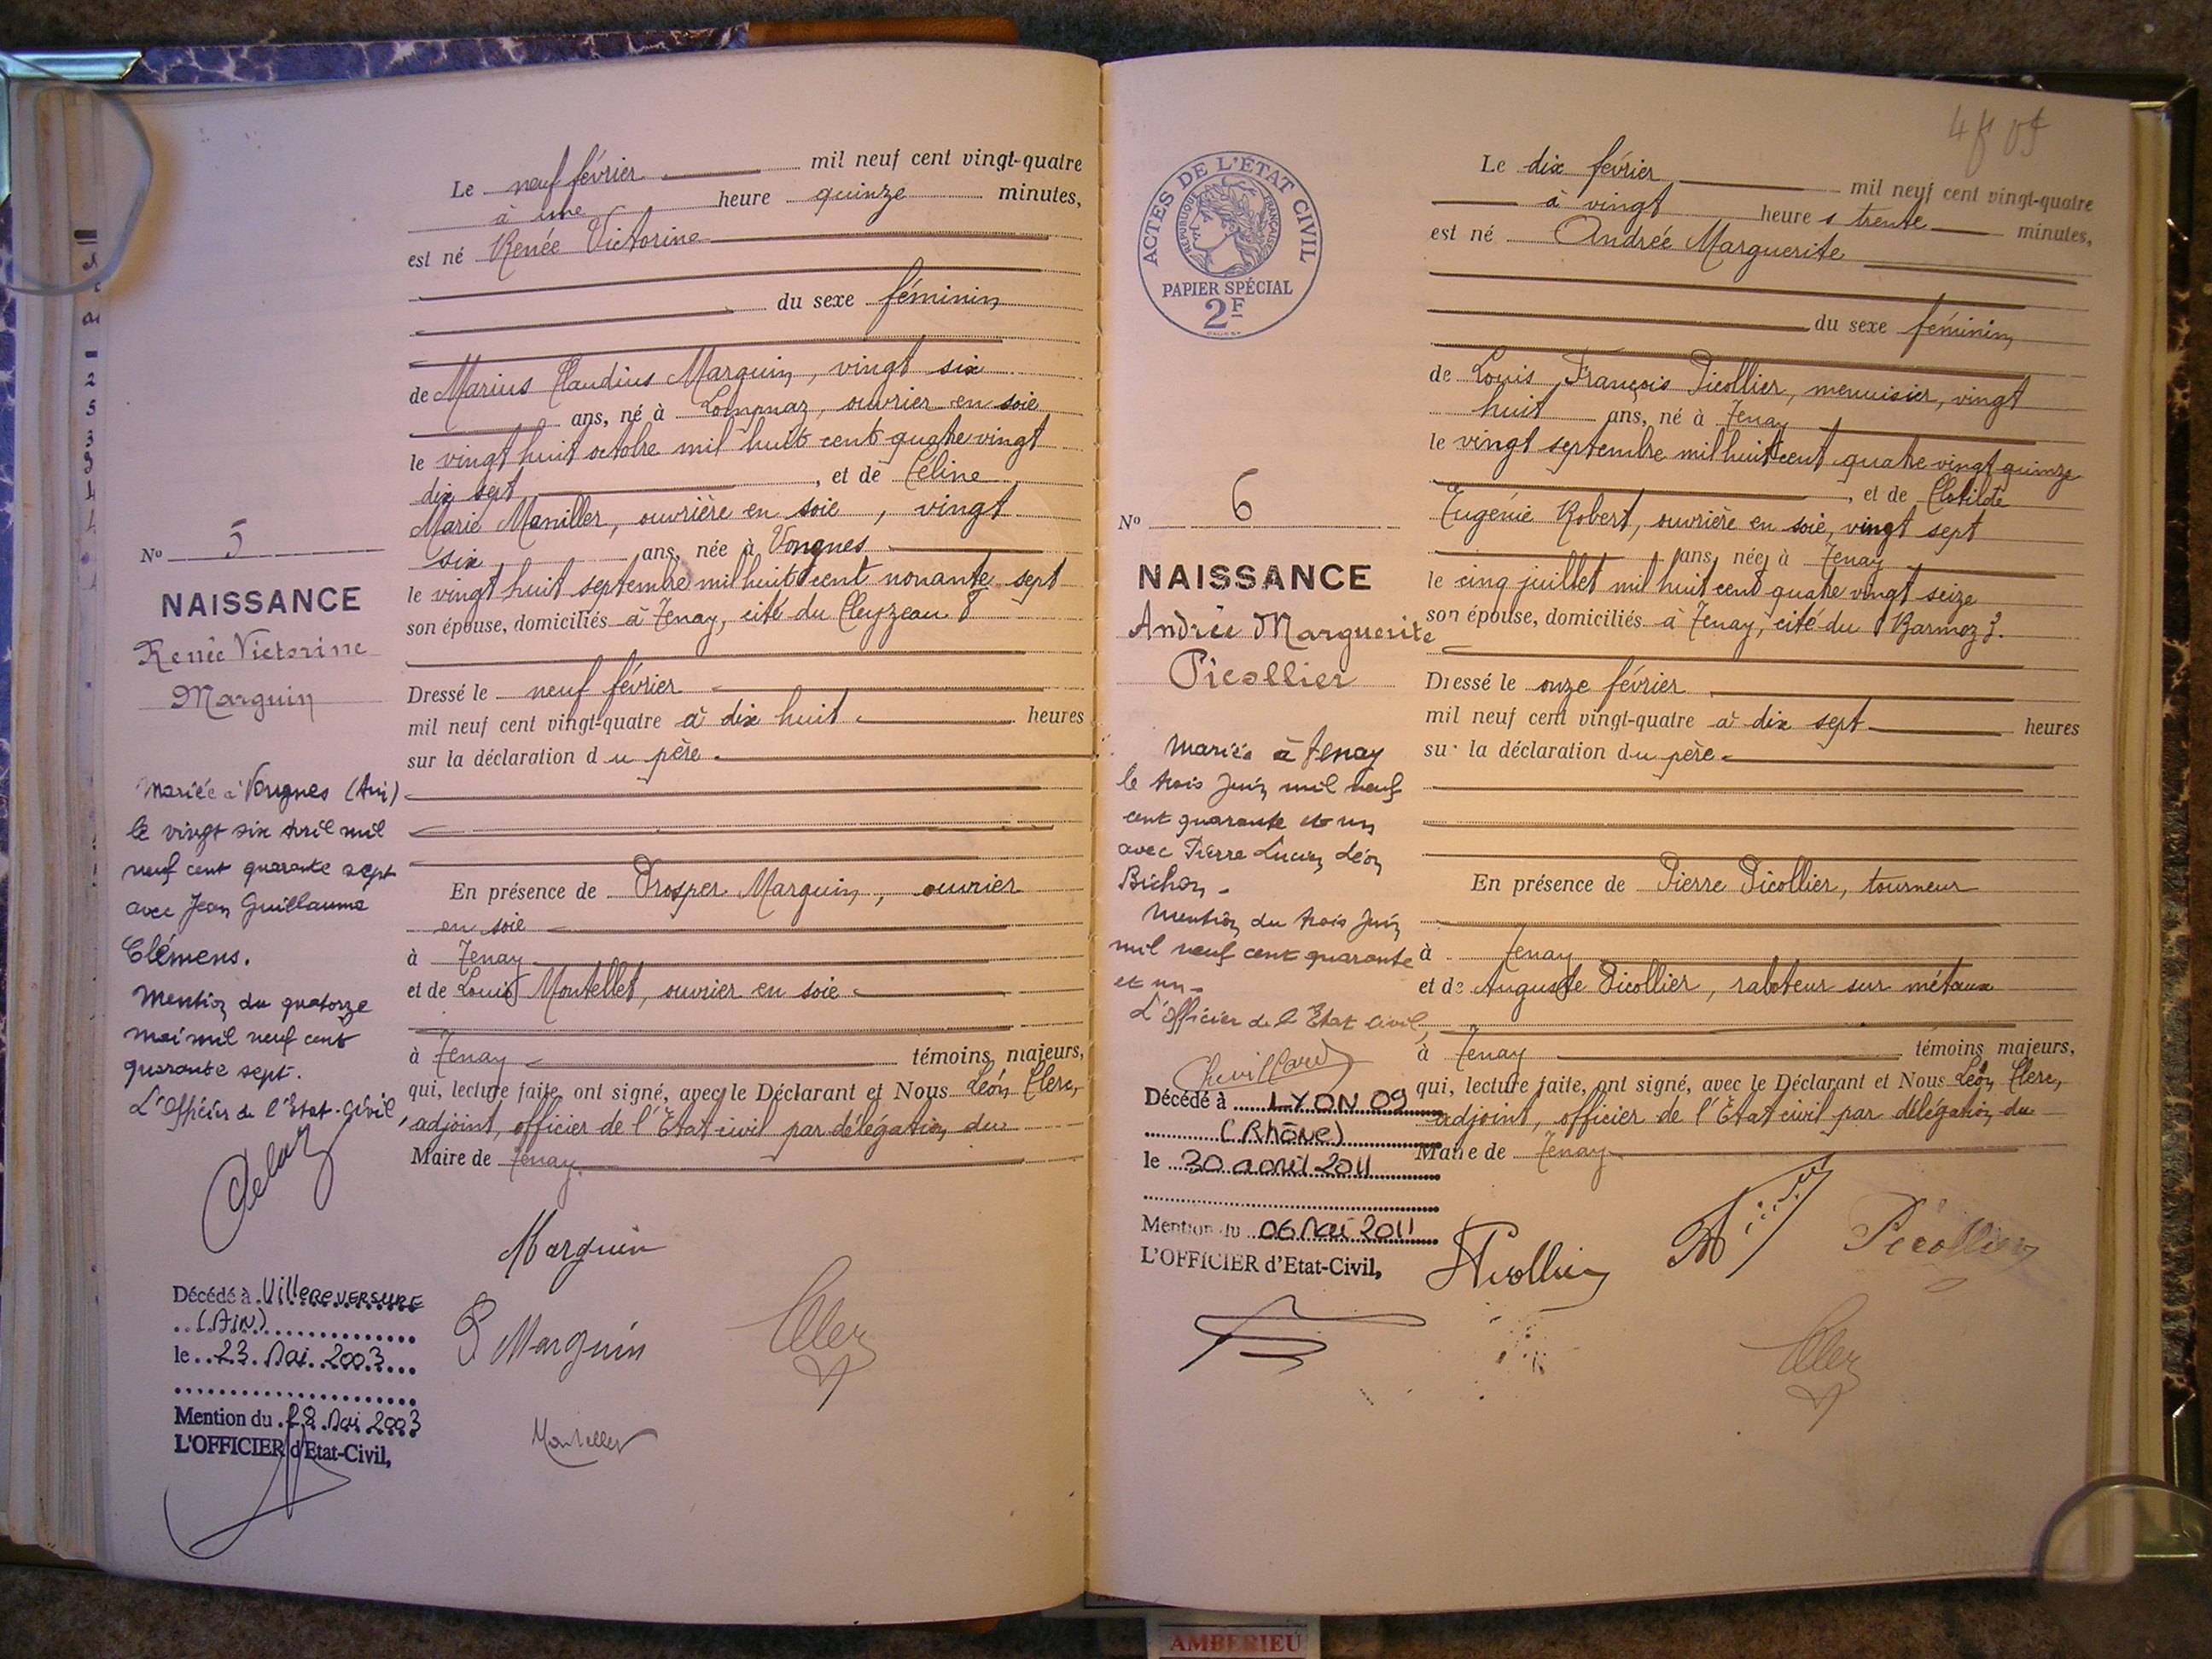 Le neuf février mil neuf cent vingt-quatre
à une heure quinze minutes,
est né Renée Victorine
du sexe féminin
de Marius Claudius Marguin, vingt six
ans, né à Lompnaz, ouvrier en soie
le vingt huit octobre mil huit cent quatre vingt
dix sept, et de Céline
Marie Maniller, ouvrière en soie, vingt
six ans, née à Vongnes
le vingt huit septembre mil huit cent nonante sept
son épouse, domiciliés à Tenay, cité du Cleyzeau 8
Dressé le neuf février
mil neuf cent vingt-quatre à dix huit heures
sur la déclaration du père
En présence de Prosper Marguin, ouvrier
en soie
à Tenay
et de Louis Montellet, ouvrier en soie
à Tenay témoins majeurs,
qui, lecture faite, ont signé, avec le Déclarant et Nous Léon Clerc,
adjoint, officier de l'Etat civil par délégation du
Maire de Tenay.
Marguin
P Marguin
Clerc
Montellet
No 5
NAISSANCE
Renée Victorine
Marguin
Mariée à Vongnes (Ain)
le vingt six avril mil
neuf cent quarante sept
avec Jean Guillaume
Clémens.
Mention du quatorze
mai mil neuf cent
quarante sept.
L'officier de l'Etat-Civil,
Décédé à Villereversure
(Ain)
le 23 Mai 2003
Mention du 28 Mai 2003
L'OFFICIER d'Etat-Civil,
ACTES DE L'ETAT CIVIL
REPUBLIQUE FRANÇAISE
PAPIER SPÉCIAL
2F
Le dix février mil neuf cent vingt-quatre
à vingt heures trente minutes,
est né Andrée Marguerite
du sexe féminin
de Louis François Picollier, menuisier, vingt
huit ans, né à Tenay
le vingt septembre mil huit cent quatre vingt quinze
, et de Clotilde
Eugénie Robert, ouvrière en soie, vingt sept
ans, née à Tenay
le cinq juillet mil huit cent quatre vingt seize
son épouse, domiciliés à Tenay, cité du Barmoz 3.
Dressé le onze février
mil neuf cent vingt-quatre à dix sept heures
sur la déclaration du père
En présence de Pierre Picollier, tourneur
à Tenay
et de Auguste Picollier, raboteur sur métaux
à Tenay témoins majeurs,
qui, lecture faite, ont signé, avec le Déclarant et Nous Léon Clerc,
adjoint, officier de l'Etat civil par délégation du
Maire de Tenay
Picollier
Clerc
No 6
NAISSANCE
Andrée Marguerite
Picollier
Mariée à Tenay
le trois Juin mil neuf
cent quarante et un
avec Pierre Lucien Léon
Bichon
Mention du trois Juin
mil neuf cent quarante
et un
L'officier de l'Etat Civil,
Chevillard
Décédé à LYON 09
(Rhône)
le 30 avril 2011
Mention du 06 Mai 2011
L'OFFICIER d'Etat-Civil,
AMBERIEU